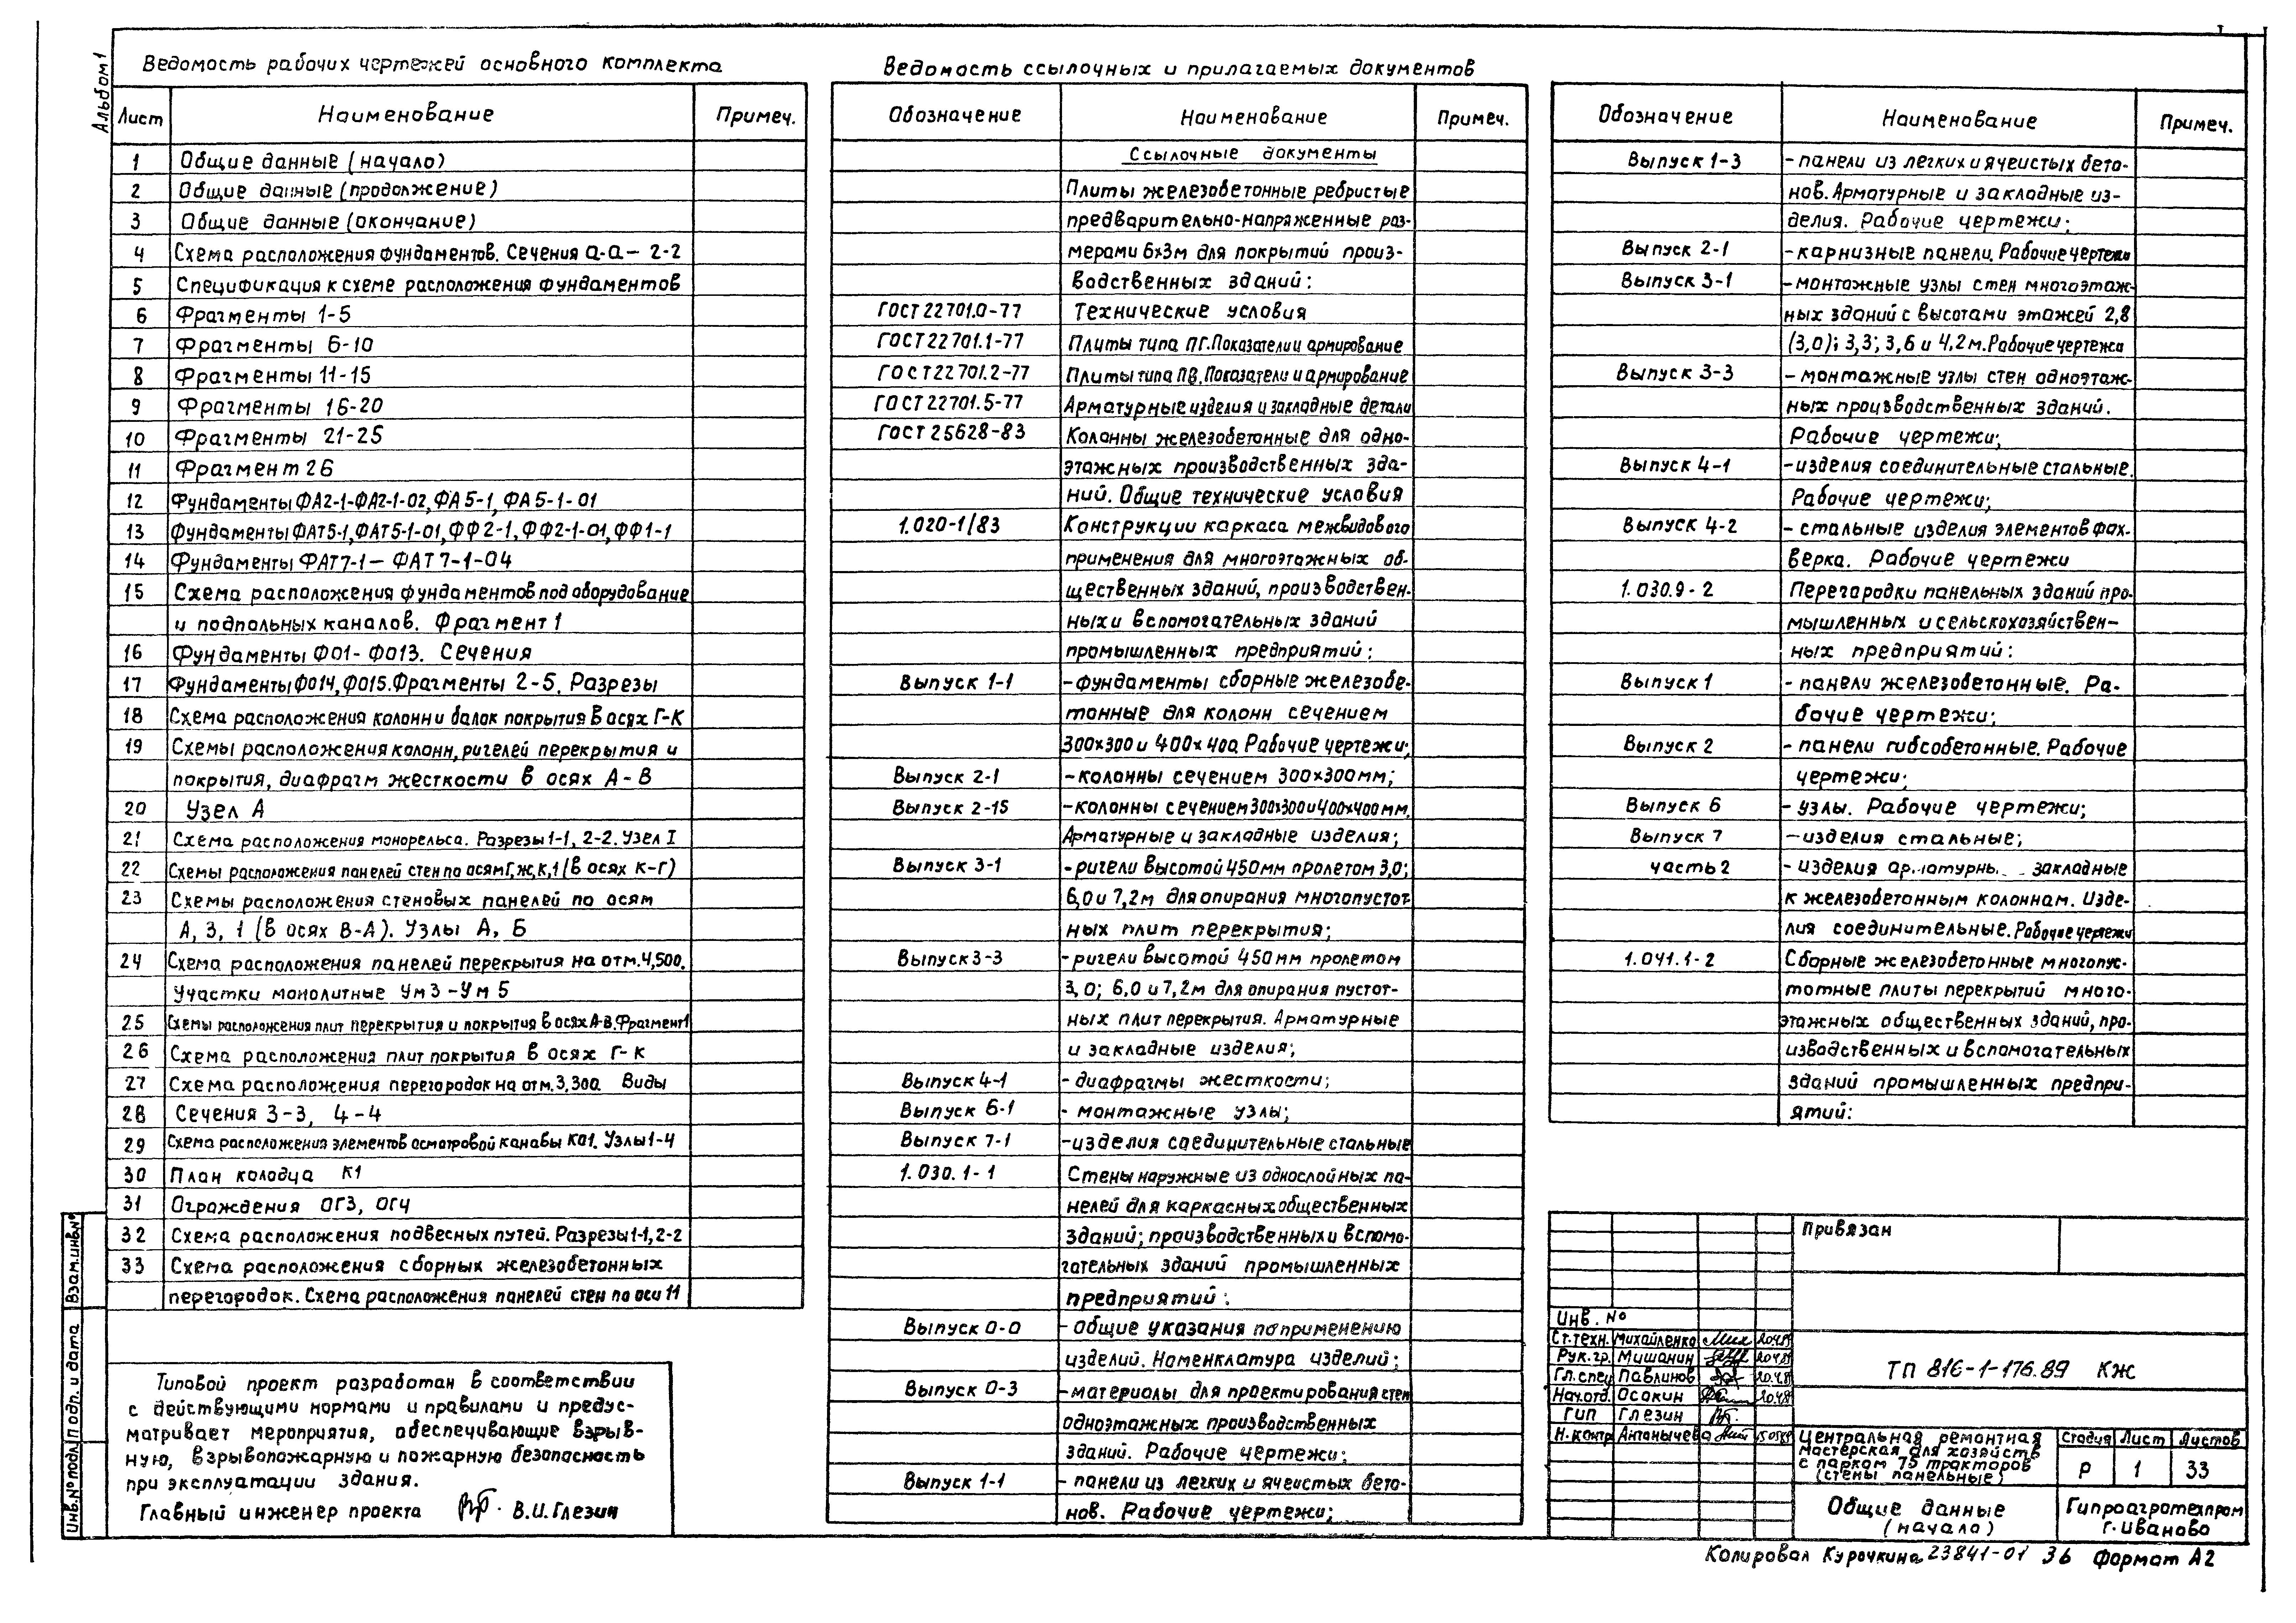 Альбом 1
Ведомость рабочих чертежей основного комплекта
Лист Наименование Примеч.
1 Общие данные (начало)
2 Общие данные (продолжение)
3 Общие данные (окончание)
4 Схема расположения фундаментов. Сечения а-а – 2-2
5 Спецификация к схеме расположения фундаментов
6 Фрагменты 1-5
7 Фрагменты 6-10
8 Фрагменты 11-15
9 Фрагменты 16-20
10 Фрагменты 21-25
11 Фрагмент 26
12 Фундаменты ФА2-1-ФА2-1-02, ФА5-1, ФА5-1-01
13 Фундаменты ФАТ5-1, ФАТ5-1-01, ФФ2-1, ФФ2-1-01, ФФ1-1
14 Фундаменты ФАТ7-1 – ФАТ7-1-04
15 Схема расположения фундаментов под оборудование
и подпольных каналов. Фрагмент 1
16 Фундаменты ФО1-ФО13. Сечения
17 Фундаменты ФО14, ФО15. Фрагменты 2-5. Разрезы
18 Схема расположения колонн и балок покрытия в осях Г-К
19 Схемы расположения колонн, ригелей перекрытия и
покрытия, диафрагм жесткости в осях А-В
20 Узел А
21 Схема расположения монорельса. Разрезы 1-1, 2-2. Узел I
22 Схемы расположения панелей стен по осям Г, Ж, К, 1 (в осях К-Г)
23 Схемы расположения стеновых панелей по осям
А, 3, 1 (в осях В-А). Узлы А, Б
24 Схема расположения панелей перекрытия на отм. 4,500.
Участки монолитные Ум3 – Ум5
25 Схемы расположения плит перекрытия и покрытия в осях А-В. Фрагмент 1
26 Схема расположения плит покрытия в осях Г-К
27 Схема расположения перегородок на отм. 3,300. Виды
28 Сечения 3-3, 4-4
29 Схема расположения элементов осмотровой канавы КО1. Узлы 1-4
30 План колодца К1
31 Ограждения ОГ3, ОГ4
32 Схема расположения подвесных путей. Разрезы 1-1, 2-2
33 Схема расположения сборных железобетонных
перегородок. Схема расположения панелей стен по оси 11
Типовой проект разработан в соответствии
с действующими нормами и правилами и предус-
матривает мероприятия, обеспечивающие взрыв-
ную, взрывопожарную и пожарную безопасность
при эксплуатации здания.
Главный инженер проекта В.И. Глезин
Взам. инв. №
Подп. и дата
Инв. № подл.
Ведомость ссылочных и прилагаемых документов
Обозначение Наименование Примеч.
Ссылочные документы
Плиты железобетонные ребристые
предварительно-напряженные раз-
мерами 6х3м для покрытий произ-
водственных зданий:
ГОСТ 22701.0-77 Технические условия
ГОСТ 22701.1-77 Плиты типа ПГ. Показатели и армирование
ГОСТ 22701.2-77 Плиты типа ПВ. Показатели и армирование
ГОСТ 22701.5-77 Арматурные изделия и закладные детали
ГОСТ 25628-83 Колонны железобетонные для одно-
этажных производственных зда-
ний. Общие технические условия
1.020-1/83 Конструкции каркаса межвидового
применения для многоэтажных об-
щественных зданий, производствен-
ных и вспомогательных зданий
промышленных предприятий:
Выпуск 1-1 - фундаменты сборные железобе-
тонные для колонн сечением
300х300 и 400х400. Рабочие чертежи;
Выпуск 2-1 - колонны сечением 300х300мм;
Выпуск 2-15 - колонны сечением 300х300 и 400х400мм.
Арматурные и закладные изделия;
Выпуск 3-1 - ригели высотой 450мм пролетом 3,0;
6,0 и 7,2м для опирания многопустот-
ных плит перекрытия;
Выпуск 3-3 - ригели высотой 450мм пролетом
3,0; 6,0 и 7,2м для опирания пустот-
ных плит перекрытия. Арматурные
и закладные изделия;
Выпуск 4-1 - диафрагмы жесткости;
Выпуск 6-1 - монтажные узлы;
Выпуск 7-1 - изделия соединительные стальные
1.030.1-1 Стены наружные из однослойных па-
нелей для каркасных общественных
зданий; производственных и вспомо-
гательных зданий промышленных
предприятий:
Выпуск 0-0 - общие указания по применению
изделий. Номенклатура изделий;
Выпуск 0-3 - материалы для проектирования стен
одноэтажных производственных
зданий. Рабочие чертежи;
Выпуск 1-1 - панели из легких и ячеистых бето-
нов. Рабочие чертежи;
Обозначение Наименование Примеч.
Выпуск 1-3 - панели из легких и ячеистых бето-
нов. Арматурные и закладные из-
делия. Рабочие чертежи;
Выпуск 2-1 - карнизные панели. Рабочие чертежи
Выпуск 3-1 - монтажные узлы стен многоэтаж-
ных зданий с высотами этажей 2,8
(3,0); 3,3; 3,6 и 4,2м. Рабочие чертежи
Выпуск 3-3 - монтажные узлы стен одноэтаж-
ных производственных зданий.
Рабочие чертежи;
Выпуск 4-1 - изделия соединительные стальные.
Рабочие чертежи;
Выпуск 4-2 - стальные изделия элементов фах-
верка. Рабочие чертежи
1.030.9-2 Перегородки панельных зданий про-
мышленных и сельскохозяйствен-
ных предприятий:
Выпуск 1 - панели железобетонные. Ра-
бочие чертежи;
Выпуск 2 - панели гибсобетонные. Рабочие
чертежи;
Выпуск 6 - узлы. Рабочие чертежи;
Выпуск 7 - изделия стальные;
часть 2 - изделия закладные
к железобетонным колоннам. Изде-
лия соединительные. Рабочие чертежи
1.041.1-2 Сборные железобетонные многопус-
тотные плиты перекрытий много-
этажных общественных зданий, про-
изводственных и вспомогательных
зданий промышленных предпри-
ятий:
Привязан
Инв. №
Ст.техн. Михайленко 20.4.89
Рук. гр. Мишанин 20.4.89
Гл. спец Павлинов 20.4.89
Нач. отд. Осокин 20.4.89
ГИП Глезин
Н. контр Антонычева
ТП 816-1-176.89 КЖ
Центральная ремонтная
мастерская для хозяйств
с парком 75 тракторов
(стены панельные)
Стадия Лист Листов
Р 1 33
Общие данные
(начало)
Гипроагротехпром
г. Иваново
Копировал Курочкина 23841-01 36 Формат А2